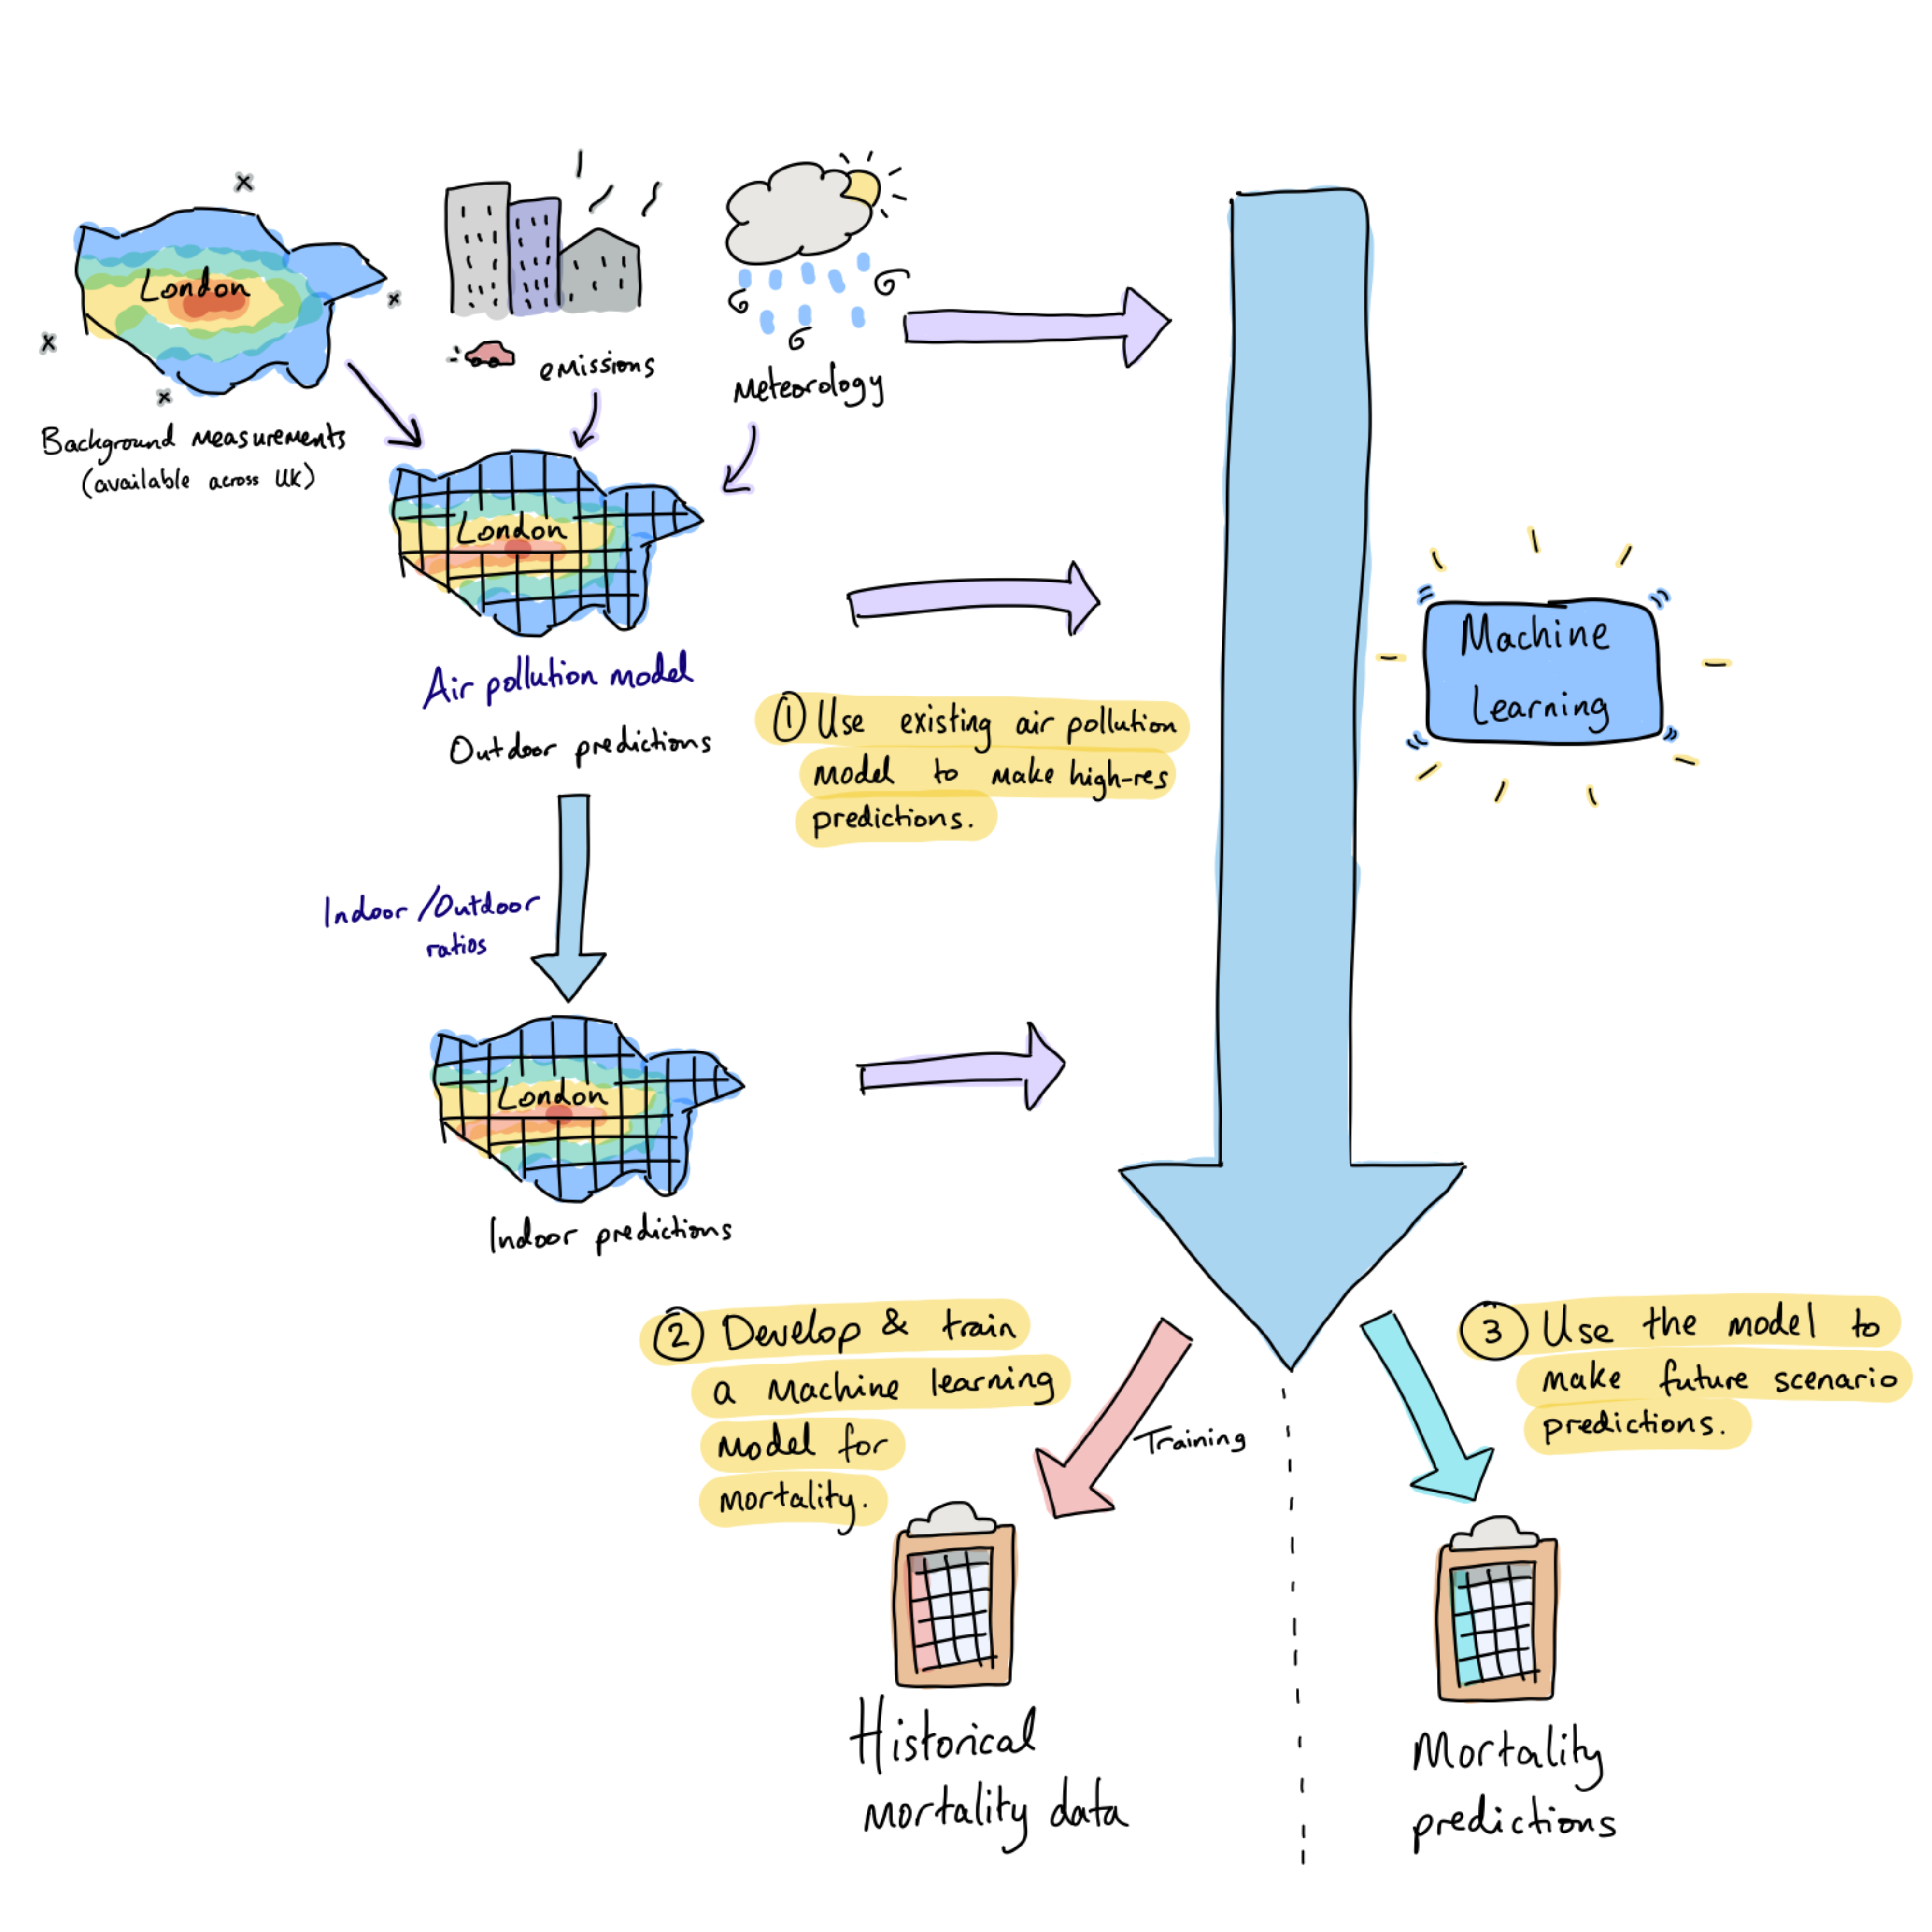 London
Background measurements
(available across UK)
emissions
Meteorology
London
Air pollution model
Outdoor predictions
① Use existing air pollution
model to make high-res
predictions.
Machine
Learning
Indoor/Outdoor
ratios
London
Indoor predictions
② Develop & train
a machine learning
model for
mortality.
Training
③ Use the model to
make future scenario
predictions.
Historical
mortality data
Mortality
predictions